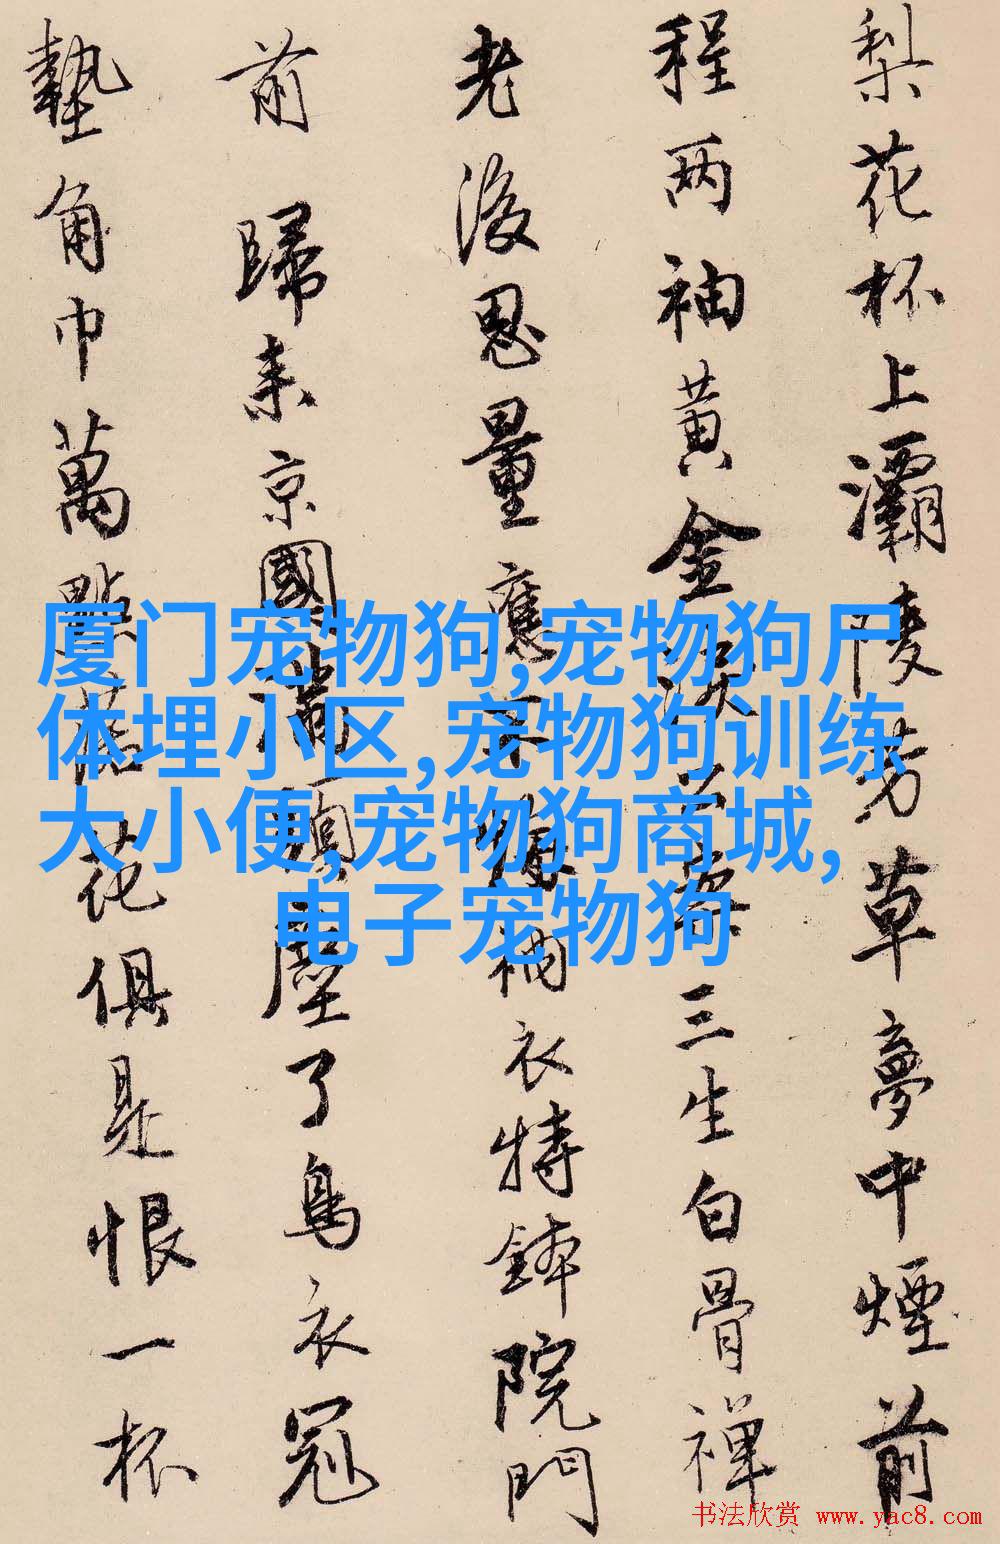 梨花杯上灞陵芳草夢中煙前
程两袖黄金淚公案三生白骨禅
老後思量應不悔衲衣持鉢院門
前歸来京國満頭塵了烏衣冠
墊角巾萬點落花俱是恨一杯
厦门宠物狗,宠物狗尸
体埋小区,宠物狗训练
大小便,宠物狗商城,
电子宠物狗
书法欣赏 www.yac8.com